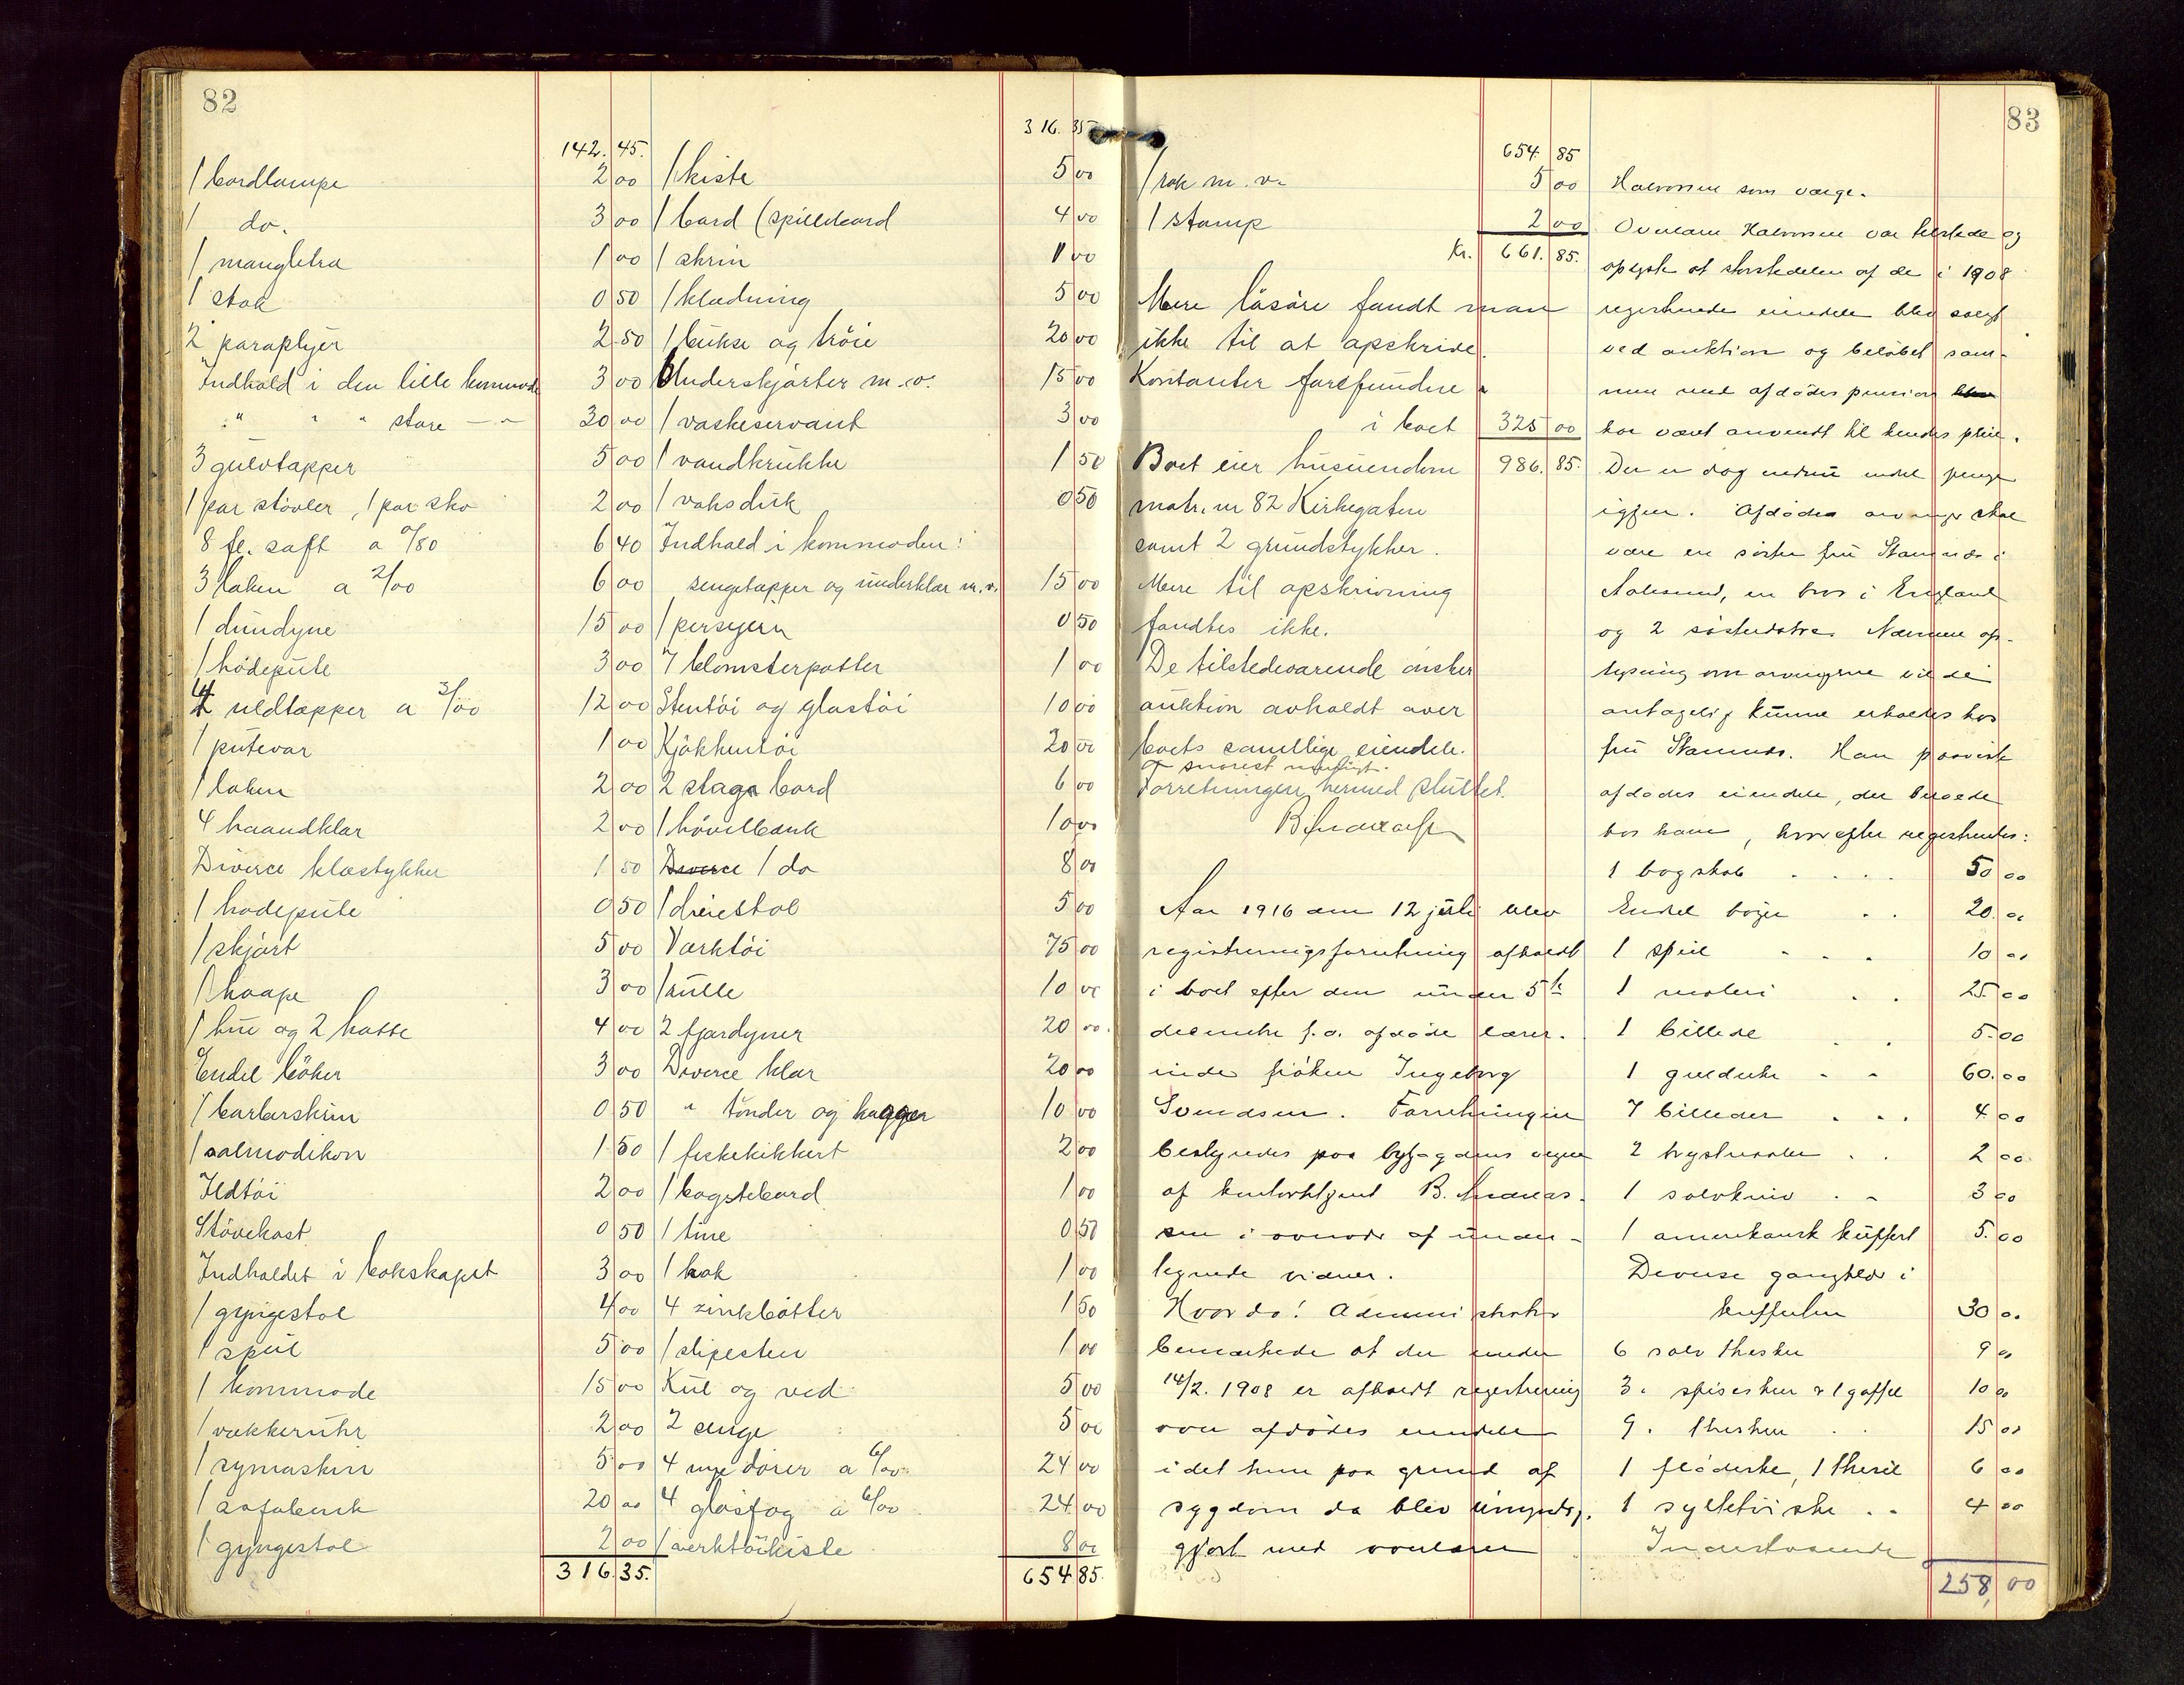 82
142.45.
1 bordlampe 2 00
1 do. 3 00
1 mangletræ 1 00
1 stok 0 50
2 paraplyer 2 50
Indhold i den lille kommode 3 00
" " " store — " 30 00
3 gulvtæpper 5 00
1 par støvler, 1 par sko 2 00
8 fl. saft a 0/80 6 40
3 laken a 2/00 6 00
1 dundyne 15 00
1 hodepute 3 00
4 uldtæpper a 3/00 12 00
1 putevar 1 00
1 laken 2 00
4 haandklær 2 00
Diverce klæstykker 1 50
1 hodepute 0 50
1 skjørt 5 00
1 kaape 3 00
1 hue og 2 hatte 4 00
Endel bøker 3 00
1 barberskrin 0 50
1 salmodikon 1 50
Ildtøi 2 00
Støvekost 0 50
Indholdet i bokskapet 3 00
1 gyngestol 4 00
1 speil 5 00
1 kommode 15 00
1 vækkeruhr 2 00
1 symaskin 5 00
1 sofabenk 20 00
1 gyngestol 2 00
316.35.
316.35
1 kiste 5 00
1 bord (spillebord 4 00
1 skrin 1 00
1 klædning 5 00
1 bukse og trøie 20 00
Underskjørter m.v. 15 00
1 vaskeservant 3 00
1 vandkrukke 1 50
1 voksduk 0 50
Indhold i kommoden:
sengetæpper og underklær m.v. 15 00
1 persejern 0 50
7 blomsterpotter 1 00
Stentøi og glastøi 10 00
Kjøkkentøi 20 00
2 slags bord 6 00
1 høvelbenk 10 00
Diverce 1 do 8 00
1 dreiestol 5 00
Værktøi 75 00
1 rulle 10 00
2 fjærdyner 20 00.
Diverce klær 20 00
" tønder og kagger 10 00
1 fiskekikkert 2 00
1 bagstebord 1 00
1 tine 0 50
1 bok 1 00
4 zinkbøtter 1 50
1 slipesten 1 00
Kul og ved 5 00
2 senge 5 00
4 nye dører a 6/00 24 00
4 glasfag a 6/00 24 00
1 verktøikiste 8 00
654 85.
654.85
1 rok m.v. 5 00
1 stamp 2 00
Kr. 661.85.
Mere løsøre fandt man
ikke til at opskrive.
Kontanter forefundne
i boet 325 00
Boet eier huseiendom 986.85.
matr. nr 82 Kirkegaten
samt 2 grundstykker.
Mere til opskrivning
fandtes ikke.
De tilstedeværende ønsker
auktion avholdt over
boets samtlige eiendele.
og snarest muligt.
Forretningen hermed sluttet.
Aar 1916 den 12 juli blev
registreringsforretning afholdt
i boet efter den under 5te
december f.a. afdøde lærer-
inde frøken Ingeborg
Svendsen. Forretningen
bestyredes paa byfogdens vegne
af kontorbetjent B. Andreas-
sen i overvær af under-
tegnede vidner.
Hvorda! Administrator
bemærkede at der under
14/2. 1908 er afholdt registrering
over afdødes eiendele
idet hun paa grund af
sygdom da blev umyndig-
gjort med overlærer
83
Halvorsen som værge.
Overlærer Halvorsen var tilstede og
oplyste at størstedelen af de i 1908
registrerede eiendele blev solgt
ved auktion og beløbet sam-
men med afdødes pension
har været anvendt til hendes pleie.
Der er dog endnu endel penge
igjen. Afdødes arvinger skal
være en søster fru Stamnes i
Aalesund, en bror i England
og 2 søsterdøtre. Nærmere op-
lysning om arvingerne vilde
antagelig kunne erholdes hos
fru Stamnes. Han paaviste
afdødes eiendele, der beroede
hos ham, hvorefter registrertes:
1 bogskab . . . . 50 00
Endel bøger . . 20.00
1 speil . . . 10 00
1 maleri . . 25.00
1 billede . . 5.00
1 guldur . . 60.00
7 billeder . . . 4 00
2 brystnaale . . 2 00
1 sølvkniv . . 3 00
1 amerikansk kuffert 5.00
Diverse gangklær i
kufferten 30 00
6 sølv theskeer 9 00
3 " spiseskeer & 1 gaffel 10 00
9 " theskeer . . 15 00
1 flødeske, 1 thesil 6 00
1 syltetøiske . . 4 00
258,00